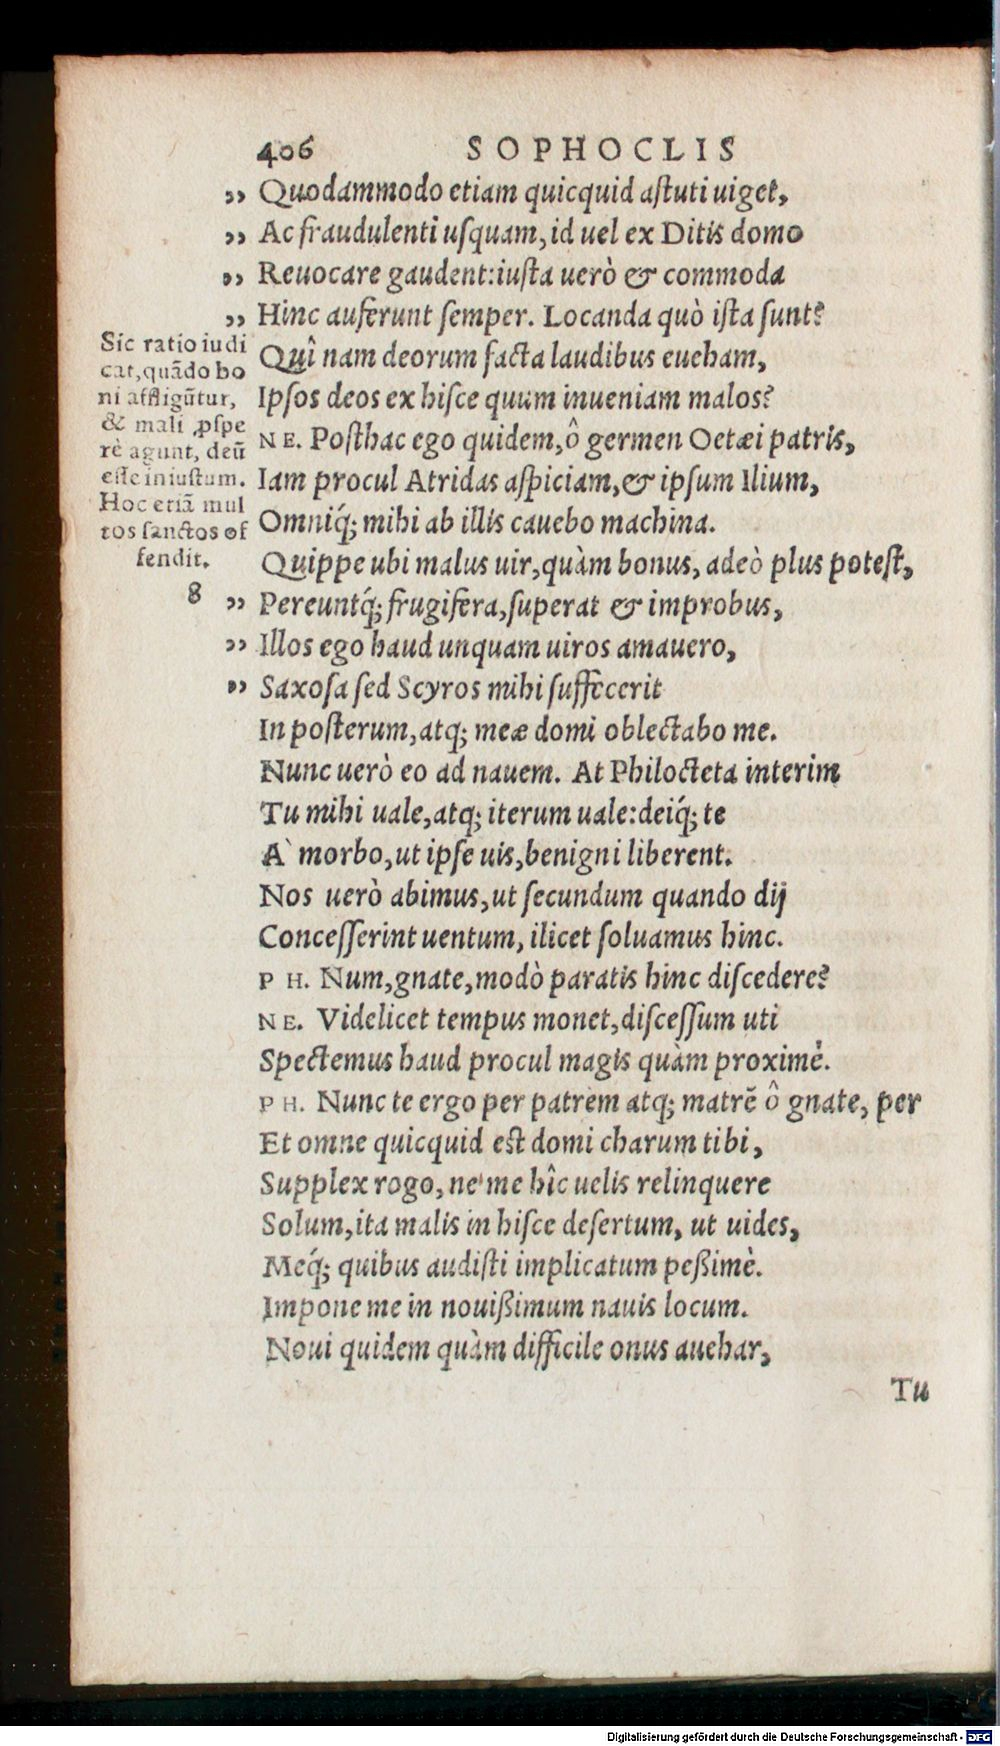 406 SOPHOCLIS
„ Quodammodo etiam quicquid aſtuti uiget,
„ Ac fraudulenti uſquam, id uel ex Ditis domo
„ Reuocare gaudent: iuſta uerò & commoda
„ Hinc auferunt ſemper. Locanda quò iſta ſunt?
Quî nam deorum facta laudibus eueham,
Ipſos deos ex hiſce quum inueniam malos?
NE. Poſthac ego quidem, ô germen Oetæi patris,
Iam procul Atridas aſpiciam, & ipſum Ilium,
Omniq́; mihi ab illis cauebo machina.
Quippe ubi malus uir, quàm bonus, adeò plus poteſt,
„ Pereuntq́; frugifera, ſuperat & improbus,
„ Illos ego haud unquam uiros amauero,
„ Saxoſa ſed Scyros mihi ſuffecerit
In poſterum, atq; meæ domi oblectabo me.
Nunc uerò eo ad nauem. At Philocteta interim
Tu mihi uale, atq; iterum uale: deiq́; te
A` morbo, ut ipſe uis, benigni liberent.
Nos uerò abimus, ut ſecundum quando dij
Conceſſerint uentum, ilicet ſoluamus hinc.
PH. Num, gnate, modò paratis hinc diſcedere?
NE. Videlicet tempus monet, diſceſſum uti
Spectemus haud procul magis quàm proximè.
PH. Nunc te ergo per patrem atq; matrē ô gnate, per
Et omne quicquid eſt domi charum tibi,
Supplex rogo, ne me hîc uelis relinquere
Solum, ita malis in hiſce deſertum, ut uides,
Meq́; quibus audiſti implicatum peßimè.
Impone me in nouißimum nauis locum.
Noui quidem quàm difficile onus auehar,
Tu
Sic ratio iudi
cat, quādo bo
ni affligūtur,
& mali ꝓſpe
rè agunt, deū
eſſe iniuſtum.
Hoc etiā mul
tos ſanctos of
fendit.
8
Digitalisierung gefördert durch die Deutsche Forschungsgemeinschaft - DFG